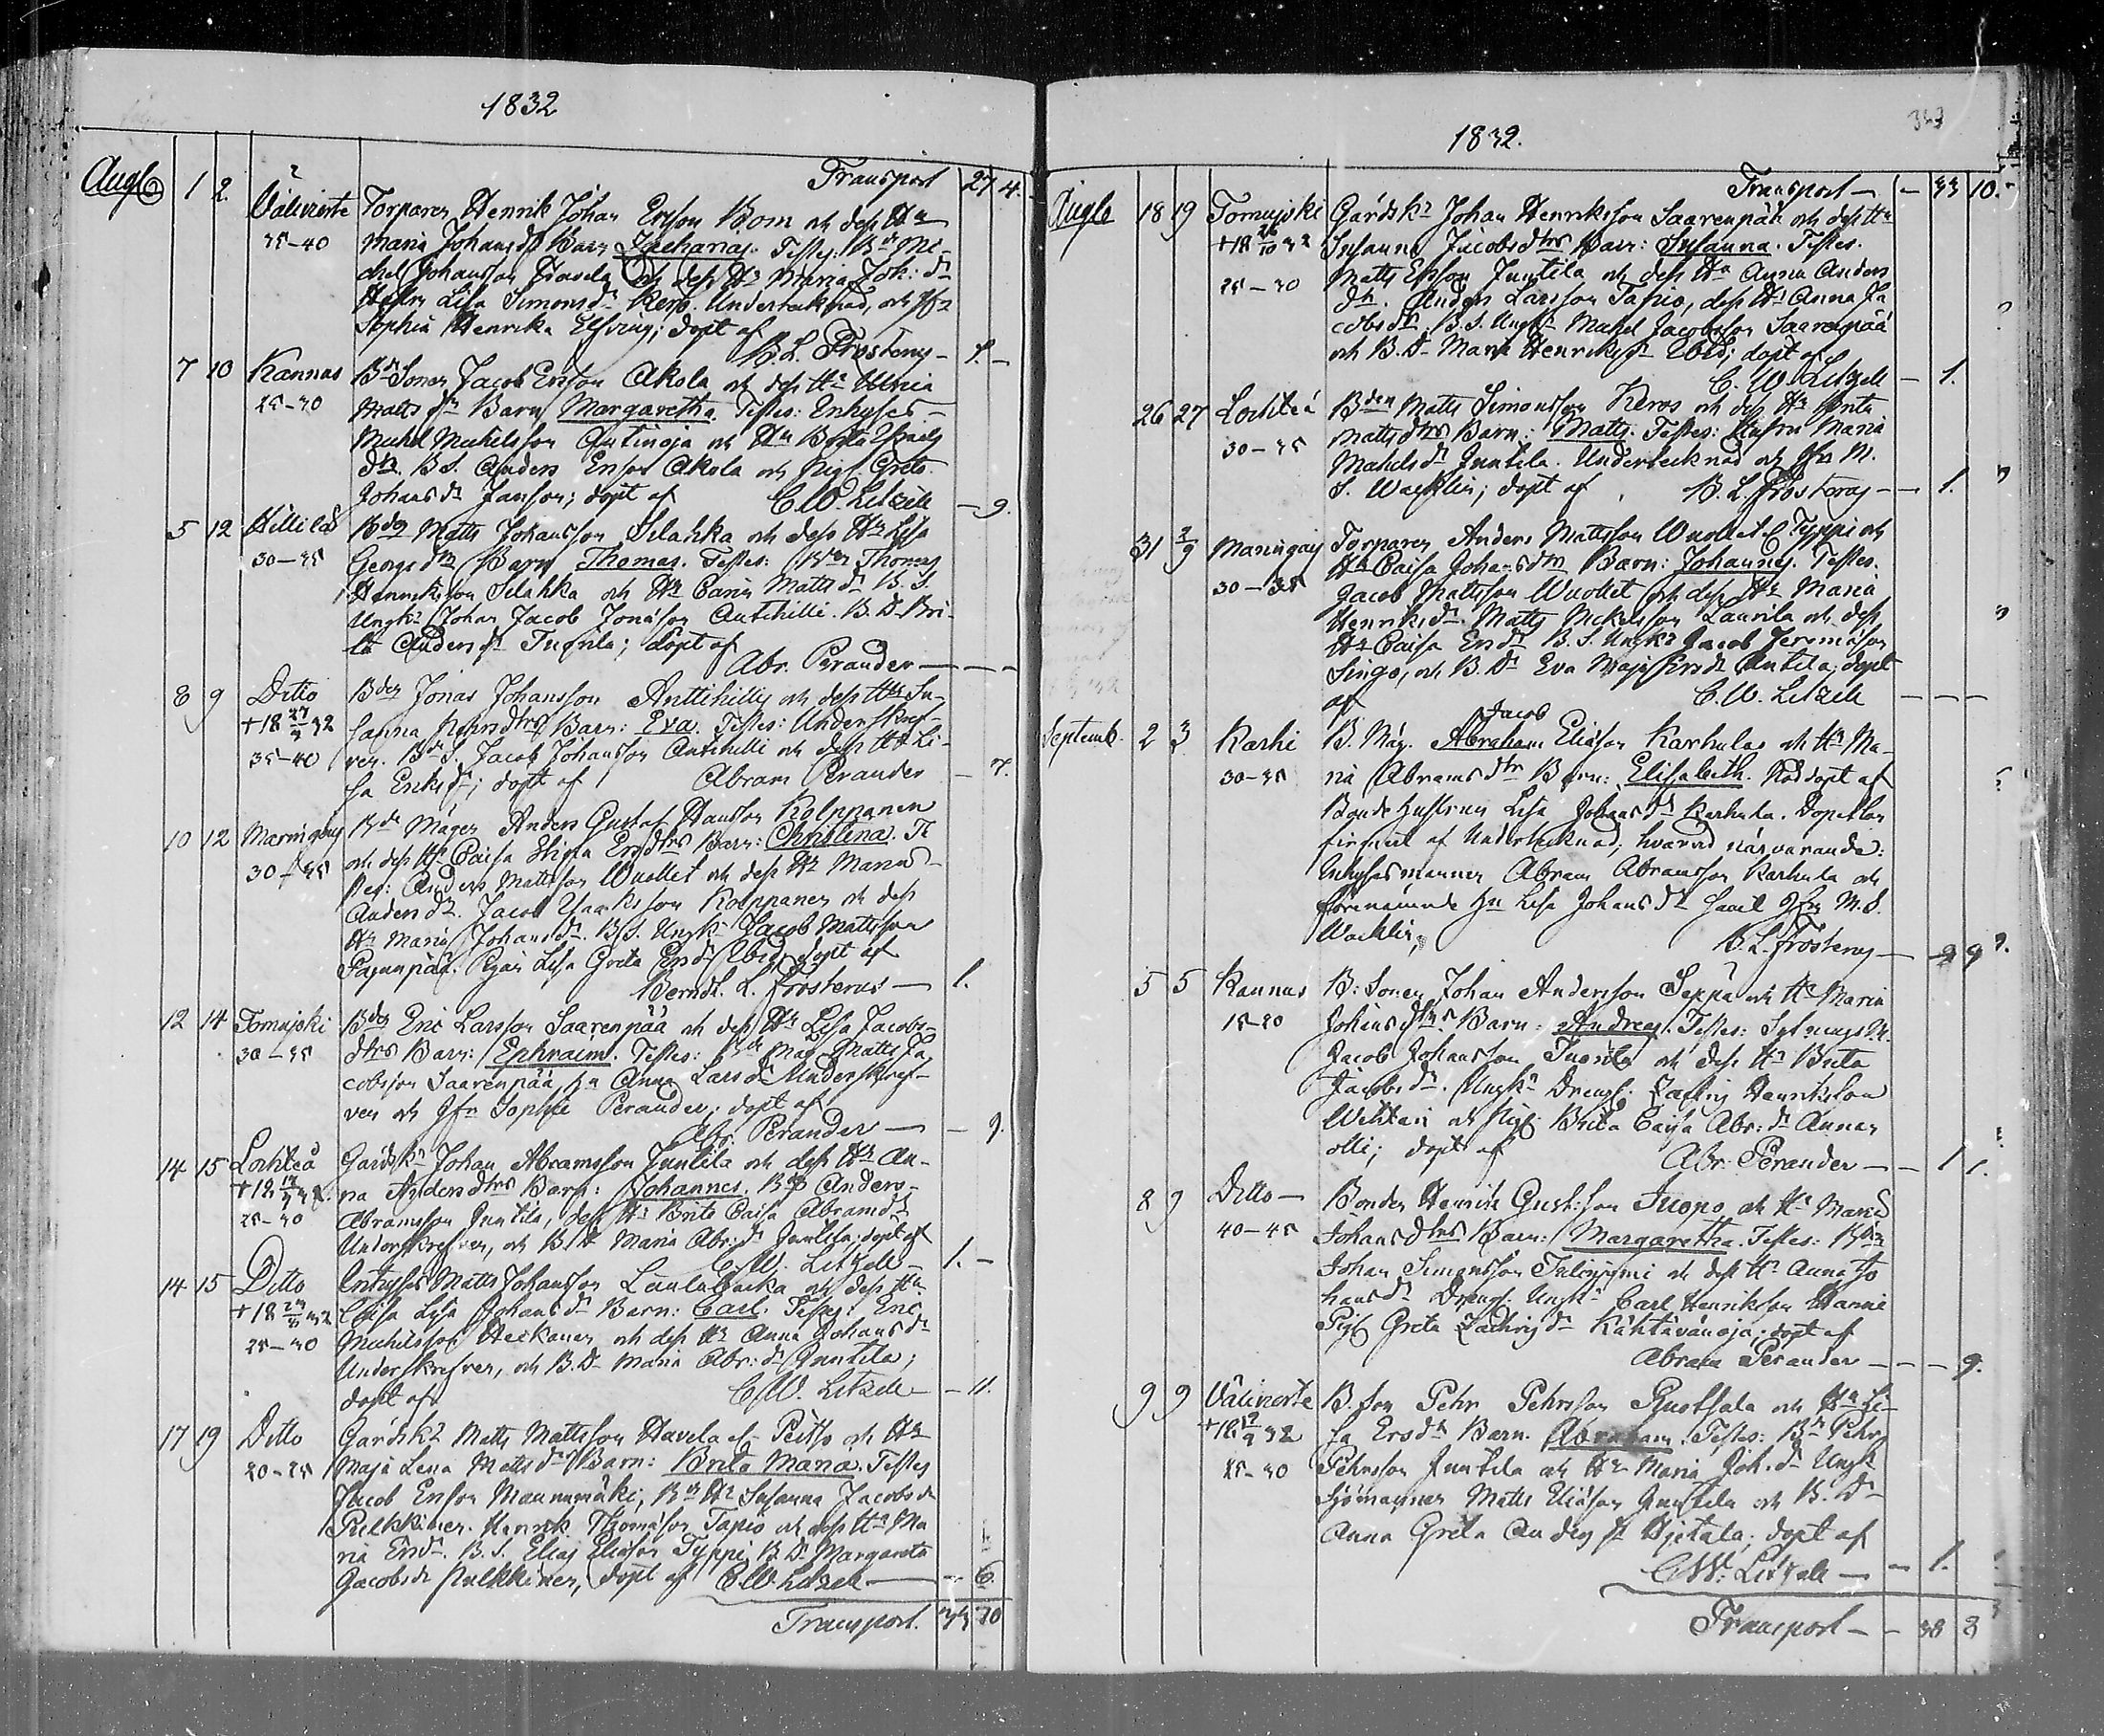 1832
Transport 27 4.
Augt 1 2. Väliviirte Torparen Henrik Johan Ersson Bom och dess Hu
35-40 Maria Johansdr Barn Zacharias. Testes: Bn Mi-
chel Johansson Havela och dess Hu Maria Joh: dr
Hustru Lisa Simonsdr Keros. Undertecknad, och Jfr
Sophia Henrika Elfving; döpt af
B. L. Frosterus - 1. -
7 10 Kannus Bde Sonen Jacob Ersson Akola och dess Hu
25-30 Matts dr Barn Margaretha. Testes: Inhyses-
Michel Michelsson Antinoja och Hu Brita
dr. B S. Anders Ersson Akola och Pig. Greta
Johans dr Jansson; döpt af C. W. Litzell - 9.
5 12 Hillilä Bden Matts Johansson Silahka och dess Hu Lisa
30-35 Georgs dr Barn Thomas. Testes: Bden Thomas
Henriksson Silahka och Hu Carin Matts dr B. S.
Ungk. Johan Jacob Jonasson Antihilli. B. D. Bri-
ta Anders dr Tuorila; döpt af
Abr. Perander - - -
8 9 Ditto Bden Jonas Johansson Anttihilli och dess Hu Su-
+18 27/9 32 sanna dtrs Barn: Eva. Testes: Underskref-
35-40 ven. Bde S. Jacob Johansson Antihilli och dess Hu Li-
sa Eriks dr; döpt af Abram Perander - 7.
10 12 Maringais Bde Mågen Anders Gustaf Hansson Kolppanen
30-35 och dess Hu Caisa Stina Ersdtrs Barn: Christina. Te
stes: Anders Mattsson Wuollet och dess Hu Maria
Anders dr. Jacob Isaksson Kolppanen och dess
Hu Maria Johans dr. B S. Ungk. Jacob Mattsson
Pajunpää. Pigan Lisa Greta Ers dr Ibid; döpt af
Berndt. L. Frosterus - 1.
12 14 Tomujoki Bden Eric Larsson Saarenpää och dess Hu Lisa Jacobs-
30-35 dtrs Barn: Ephraim. Testes: Bde Måg Matts Ja-
cobsson Saarenpää, Hu Anna Lars dr Underskref-
ven och Jfr Sophie Perander; döpt af
Abr. Perander - - 9.
14 15 Lochteå Gårdsk. Johan Abramsson Juntila och dess Hu An-
+18 32 na Andersdtrs Barn: Johannes. Bden Anders
25-30 Abramsson Juntila, dess Hu Brita Caisa Abramsdr
Underskrefven, och B. D. Maria Abr: dr Juntila; döpt af
C. W. Litzell - 1. -
14 15 Ditto Inhyses Matts Johansson Laulabacka och dess Hu
+18 32 Caisa Lisa Johans dr Barn: Carl. Testes: Eric
25-30 Michelsson Heikanen och dess Hu Anna Johans dr
Underskrefven, och B. D. Maria Abr: dr Juntila;
döpt af C. W. Litzell - - 11.
17 19 Ditto Gårdsk. Matts Mattsson Havela el. Peitso och Hu
20-25 Maja Lena Matts dr Barn: Brita Maria. Testes
Jacob Ersson Maununmäki, Bn Hu Susanna Jacobs dr
Pulkkinen. Henrik Thomasson Tapio och dess Hu Ma
ria Ersdr. B. S. Elias Eliasson Typpi B. D. Margareta
Jacobs dr Pulkkinen, döpt af C. W. Litzell - - 6.
Transport. 33 10
343
1832.
Transport - - 33 10.
Augt 18 19 Tomujoki Gårdsk. Johan Henriksson Saarenpää och dess Hu
+18 26/10 32 Susanna Jacobsdtrs Barn: Susanna. Testes.
25-30 Matts Ersson Juntila och dess Hu Anna Anders
dr. Anders Larsson Tapio, dess Hu Anna Ja
cobs dr. B. S. Ungk. Michel Jacobsson Saarenpää
och B. D. Maria Henriks dr Ibid; döpt af
C. W. Litzell - 1.
26 27 Lochteå Bden Matts Simonsson Keros och dess Hu Brita
30-35 Mattsdtrs Barn: Matts. Testes: Hustru Maria
Michels dr Juntila. Undertecknad och Jfr M.
S. Wacklin; döpt af B. L. Frosterus - - 1.
31 2/9 Maringais Torparen Anders Mattsson Wuollet el. Typpi och
30-35 Hu Caisa Johansdtrs Barn: Johannes. Testes.
Jacob Mattsson Wuollet och dess Hu Maria
Henriks dr. Matts Mickelsson Laurila och dess
Hu Caisa Ers dr B. S. Ungk. Jacob Jeremiasson
Singo, och B. D. Eva Maja Ers dr Antila; döpt
af C. W. Litzell - - -
Jacob
Septemb. 2 3 Karhi B. Måg. Abraham Eliasson Karhulas och Hu Ma-
30-35 ria Abrams dtr Barn: Elisabeth. Nöddöpt af
Bonde Hustrun Lisa Johans dr Karhula. Dopet con
firmeradt af Undertecknad; hvarvid närvarande:
Inhysesmannen Abram Abramsson Karhula och
förenämnde Hu Lisa Johans dr samt Jfr M. S.
Wacklin; B. L. Frosterus - 9
5 5 Kannus B: Sonen Johan Andersson Seppä och Hu Maria
15-20 Johansdtrs Barn: Andreas. Testes: M.
Jacob Johansson Tuorila och dess Hu Brita
Jacobs dr. Ungk. Dreng. Zachris Henriksson
och Pig. Brita Caisa Abr: dr Annan
olli; döpt af Abr. Perander - - 1 1.
8 9 Ditto - Bonden Henrik Gust:sson Juopo och Hu Maria
40-45 Johansdtrs Barn: Margaretha. Testes: Bden
Johan Simonsson och dess Hu Anna Jo
hans dr Dreng. Ungk. Carl Henriksson Hannie
Pig. Greta Zachris dr Kähtävänoja; döpt af
Abram Perander - - - 9.
9 9 Väliviirte B. Son Pehr Pehrsson Ruotsala och Hu Li-
+18 12/9 32 sa Ersdr Barn. Abraham. Testes: Bn Pehr
25-30 Pehrsson Juntila och Hu Maria Joh. dr Ungk.
Sjömannen Matts Eliasson Juntila och B. D.
Anna Greta Anders dr Hjetala; döpt af
C. W. Litzell - - 1.
Transport - - 38 8